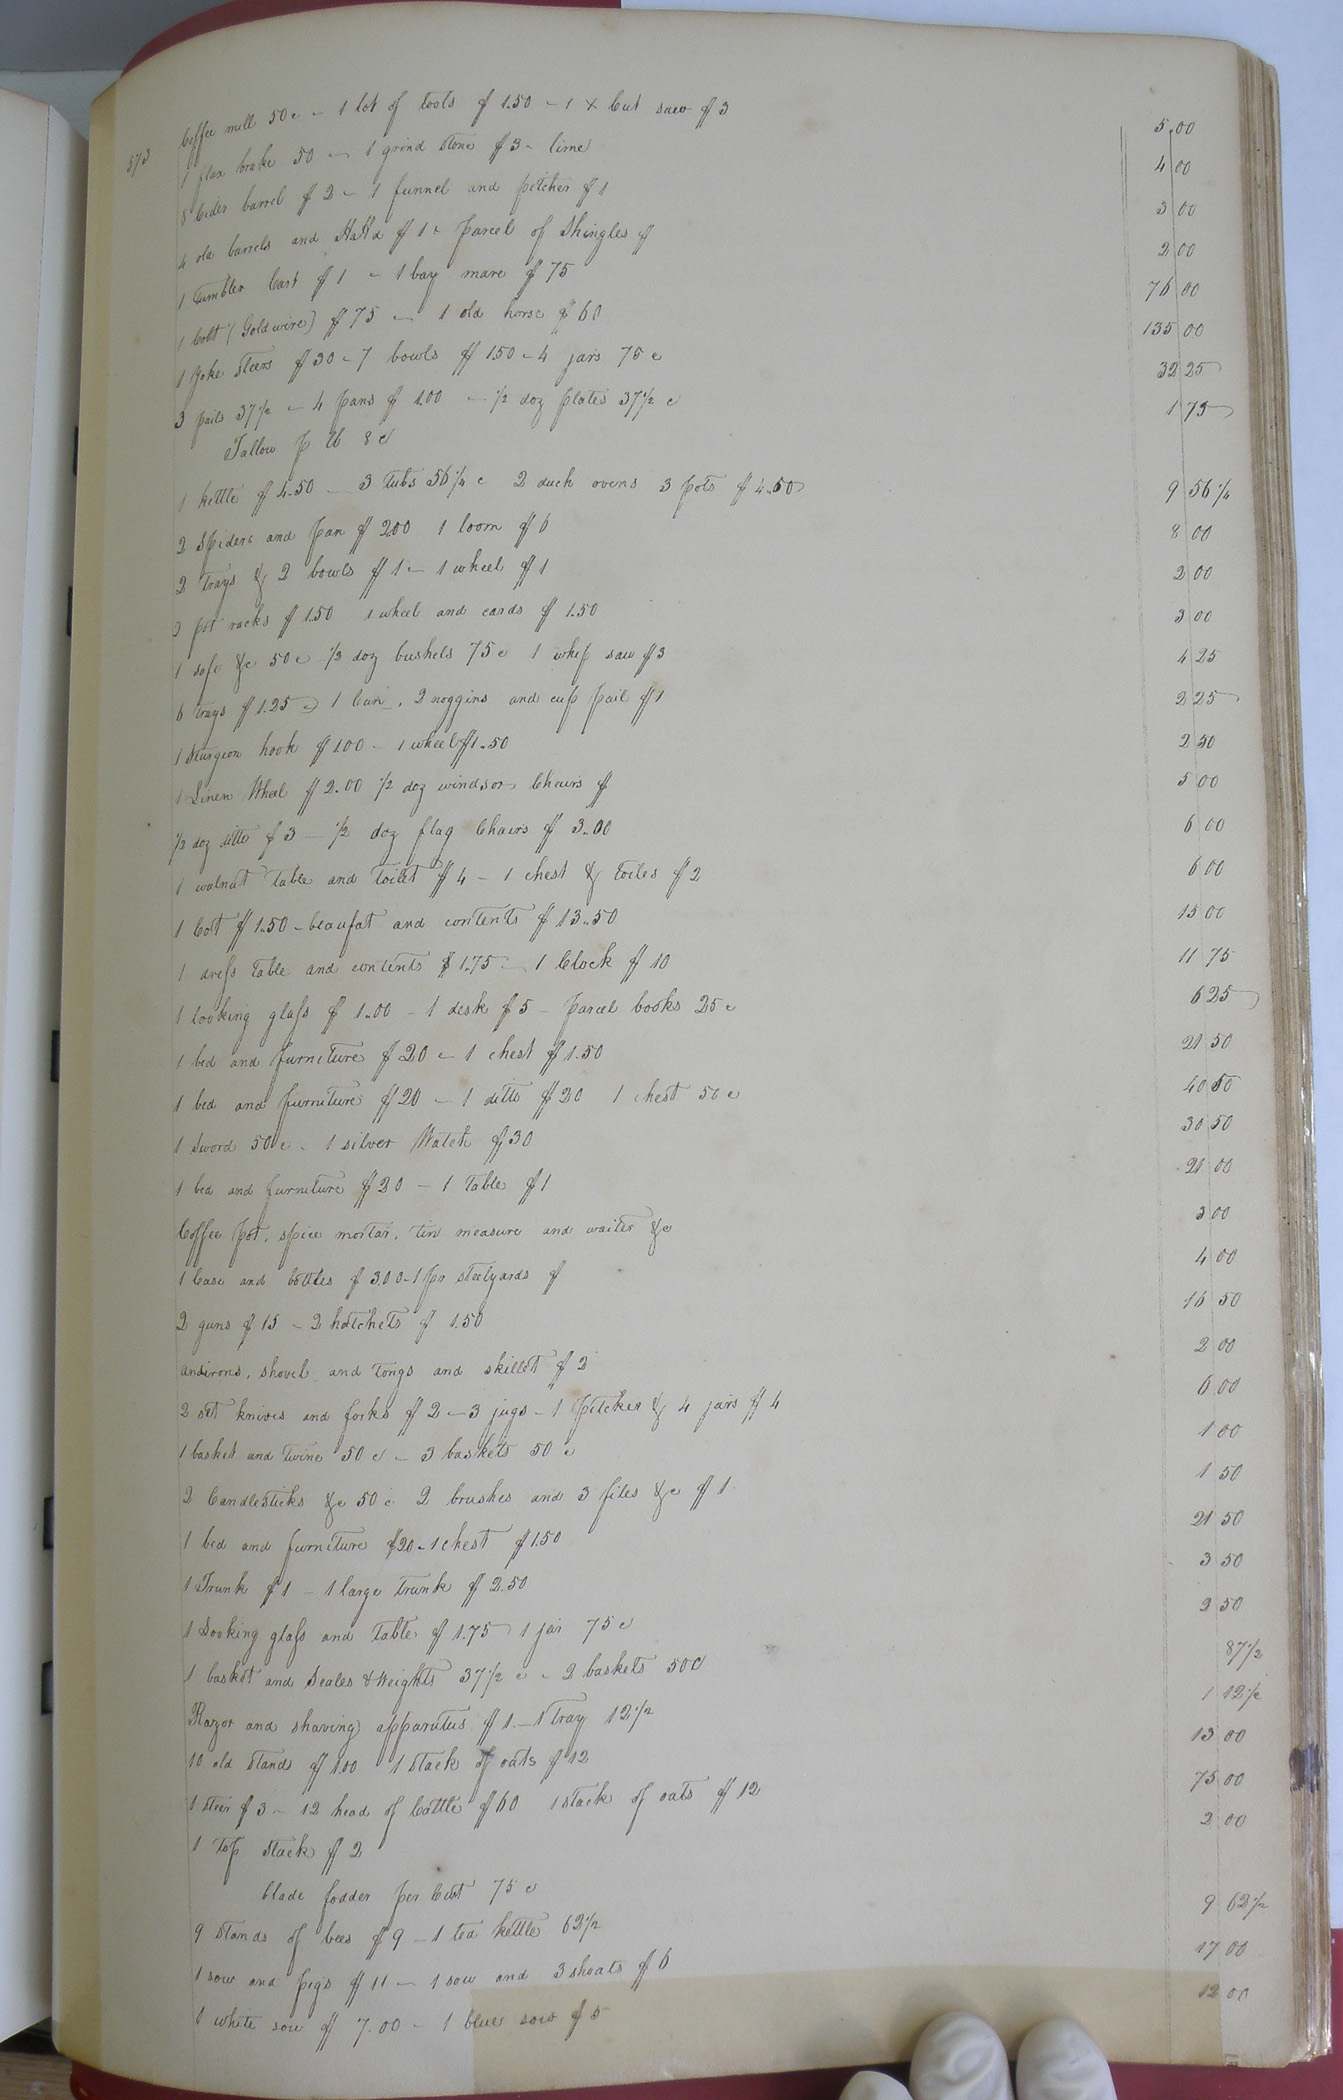 573
Coffee mill 50c - 1 lot of tools $1.50 - 1 X Cut saw $3 5.00
1 flax brake 50 - 1 grind stone $3 - lime 4 00
8 Cider barrel $2 - 1 funnel and pitcher $1 3 00
4 old barrels and HaHd $1 - parcel of Shingles $ 2 00
1 tumbler Cart $1 - 1 bay mare $75 76 00
1 Colt (Goldwire) $75 - 1 old horse $60 135 00
1 Yoke Steers $30 - 7 bowls $1.50 - 4 jars 75c 32 25
3 pails 37 1/2 - 4 pans $1.00 - 1/2 doz plates 37 1/2 c 1 75
Tallow p lb 8c
1 kettle $4.50 - 3 tubs 56 1/4 c 2 duch ovens 3 pots $4.50 9 56 1/4
2 Spiders and pan $2.00 1 loom $6 8 00
2 trays & 2 bowls $1 - 1 wheel $1 2 00
2 pot racks $1.50 1 wheel and cards $1.50 3 00
1 safe &c 50c 1/2 doz bushels 75c 1 whip saw $3 4 25
6 trays $1.25 - 1 Can, 2 noggins and cup pail $1 2 25
1 Sturgeon hook $1.00 - 1 wheel $1.50 2 50
1 Linen Wheel $2.00 1/2 doz windsor Chairs $ 5 00
1/2 doz ditto $3 - 1/2 doz flag Chairs $3.00 6 00
1 walnut table and toilet $4 - 1 chest & toiles $2 6 00
1 Cot $1.50 - beaufat and contents $13.50 15 00
1 dress table and contents $1.75 - 1 Clock $10 11 75
1 looking glass $1.00 - 1 desk $5 - parcel books 25c 6 25
1 bed and furniture $20 - 1 chest $1.50 21 50
1 bed and furniture $20 - 1 ditto $20 1 chest 50c 40 50
1 Sword 50c - 1 silver Watch $30 30 50
1 bed and furniture $20 - 1 table $1 21 00
Coffee pot, spice mortar, tin measure and waiter &c 3 00
1 Case and bottles $3.00 - 1 pr steelyards $ 4 00
2 guns $15 - 2 hatchets $1.50 16 50
andirons, shovel and tongs and skillet $2 2 00
2 set knives and forks $2 - 3 jugs - 1 pitcher & 4 jars $4 6 00
1 basket and twine 50c - 3 baskets 50c 1 00
2 Candlesticks &c 50c 2 brushes and 3 files &c $1 1 50
1 bed and furniture $20 - 1 chest $1.50 21 50
1 Trunk $1 - 1 large trunk $2.50 3 50
1 Looking glass and table $1.75 1 jar 75c 2 50
1 basket and Scales & Weights 37 1/2 c - 2 baskets 50c 87 1/2
Razor and shaving apparatus $1. - 1 tray 12 1/2 1 12 1/2
10 old stands $1.00 1 stack of oats $12 13 00
1 steer $3 - 12 head of Cattle $60 1 stack of oats $12 75 00
1 top stack $2 2 00
blade fodder per Cwt 75c
9 stands of bees $9 - 1 tea kettle 62 1/2 9 62 1/2
1 sow and pigs $11 - 1 sow and 3 shoats $6 17 00
1 white sow $7.00 - 1 blue sow $5 12 00